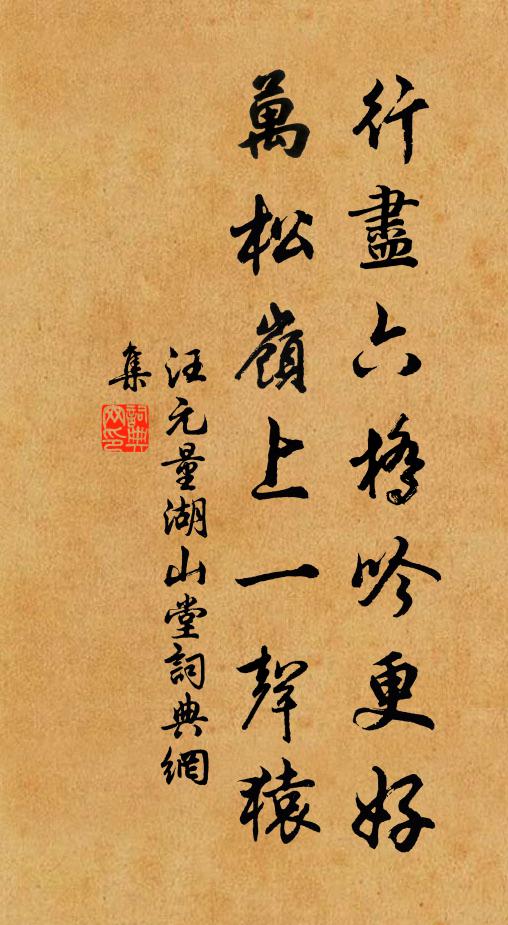 行盡六橋吟更好
萬松嶺上一聲猿
汪元量湖山堂詞典網
集
詞典网印